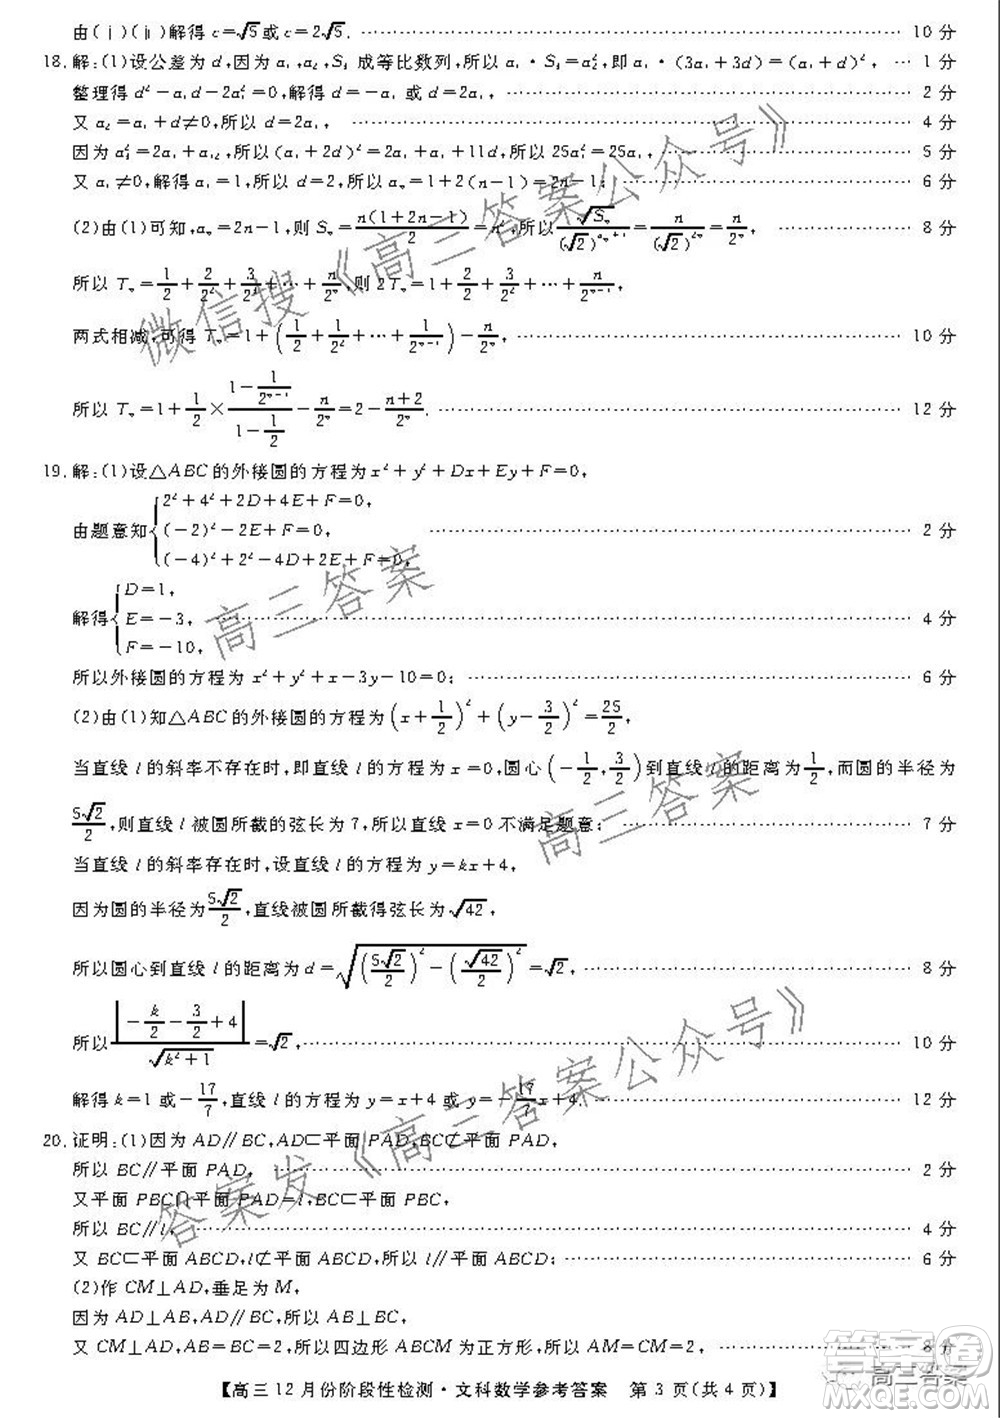 由(ⅰ)(ⅱ)解得 c=√5或 c=2√5. 10 分
18. 解:(1)设公差为 d,因为 a₁,a₂,S₃ 成等比数列,所以 a₁·S₃=a₂²,即 a₁·(3a₁+3d)=(a₁+d)², 1 分
整理得 d²-a₁d-2a₁²=0,解得 d=-a₁ 或 d=2a₁, 2 分
又 a₂=a₁+d≠0,所以 d=2a₁, 4 分
因为 =2a₁+ ,所以(a₁+2d)²=2a₁+11d,所以 25a₁²=25a₁, 5 分
又 a₁≠0,解得 a₁=1,所以 d=2,所以 aₙ=1+2(n-1)=2n-1; 6 分
(2)由(1)可知,aₙ=2n-1,则 Sₙ=n(1+2n-1)/2=n²,所以 √Sₙ/(√2)^(aₙ+1)=n/(√2)^(2n)=n/2ⁿ, 8 分
所以 Tₙ=1/2+2/2²+3/2³+⋯+n/2ⁿ,则 2Tₙ=1+2/2+3/2²+⋯+n/2ⁿ⁻¹,
两式相减,可得 Tₙ=1+(1/2+1/2²+⋯+1/2ⁿ⁻¹)-n/2ⁿ, 10 分
所以 Tₙ=1+1/2×(1-1/2ⁿ⁻¹)/(1-1/2)-n/2ⁿ=2-(n+2)/2ⁿ. 12 分
19. 解:(1)设△ABC的外接圆的方程为 x²+y²+Dx+Ey+F=0,
由题意知{2²+4²+2D+4E+F=0,
(-2)²-2E+F=0,
(-4)²+2²-4D+2E+F=0, 2 分
解得{D=1,
E=-3,
F=-10, 4 分
所以外接圆的方程为 x²+y²+x-3y-10=0; 6 分
(2)由(1)知△ABC的外接圆的方程为(x+1/2)²+(y-3/2)²=25/2,
当直线 l 的斜率不存在时,即直线 l 的方程为 x=0,圆心(-1/2,3/2)到直线 l 的距离为1/2,而圆的半径为
5√2/2,则直线 l 被圆所截的弦长为 7,所以直线 x=0 不满足题意; 7 分
当直线 l 的斜率存在时,设直线 l 的方程为 y=kx+4,
因为圆的半径为5√2/2,直线被圆所截得弦长为√42,
所以圆心到直线 l 的距离为 d=√((5√2/2)²-(√42/2)²)=√2, 8 分
所以|-k/2-3/2+4|/√(k²+1)=√2, 10 分
解得 k=1 或-17/7,直线 l 的方程为 y=x+4 或 y=-17/7x+4. 12 分
20. 证明:(1)因为 AD∥BC,AD⊂平面 PAD,BC⊄平面 PAD,
所以 BC∥平面 PAD, 2 分
又平面 PBC∩平面 PAD=l,BC⊂平面 PBC,
所以 BC∥l, 4 分
又 BC⊂平面 ABCD,l⊄平面 ABCD,所以 l∥平面 ABCD, 6 分
(2)作 CM⊥AD,垂足为 M,
因为 AD⊥AB,AD∥BC,所以 AB⊥BC
又 CM⊥AD,AB=BC=2,所以四边形 ABCM 为正方形,所以 AM=CM=2, 8 分
【高三 12 月份阶段性检测·文科数学参考答案 第 3 页(共 4 页)】
微信搜《高三答案公众号》
高三答案
高三答案
答案发《高三答案公众号》
高三答案
答案圈
MXQE.COM